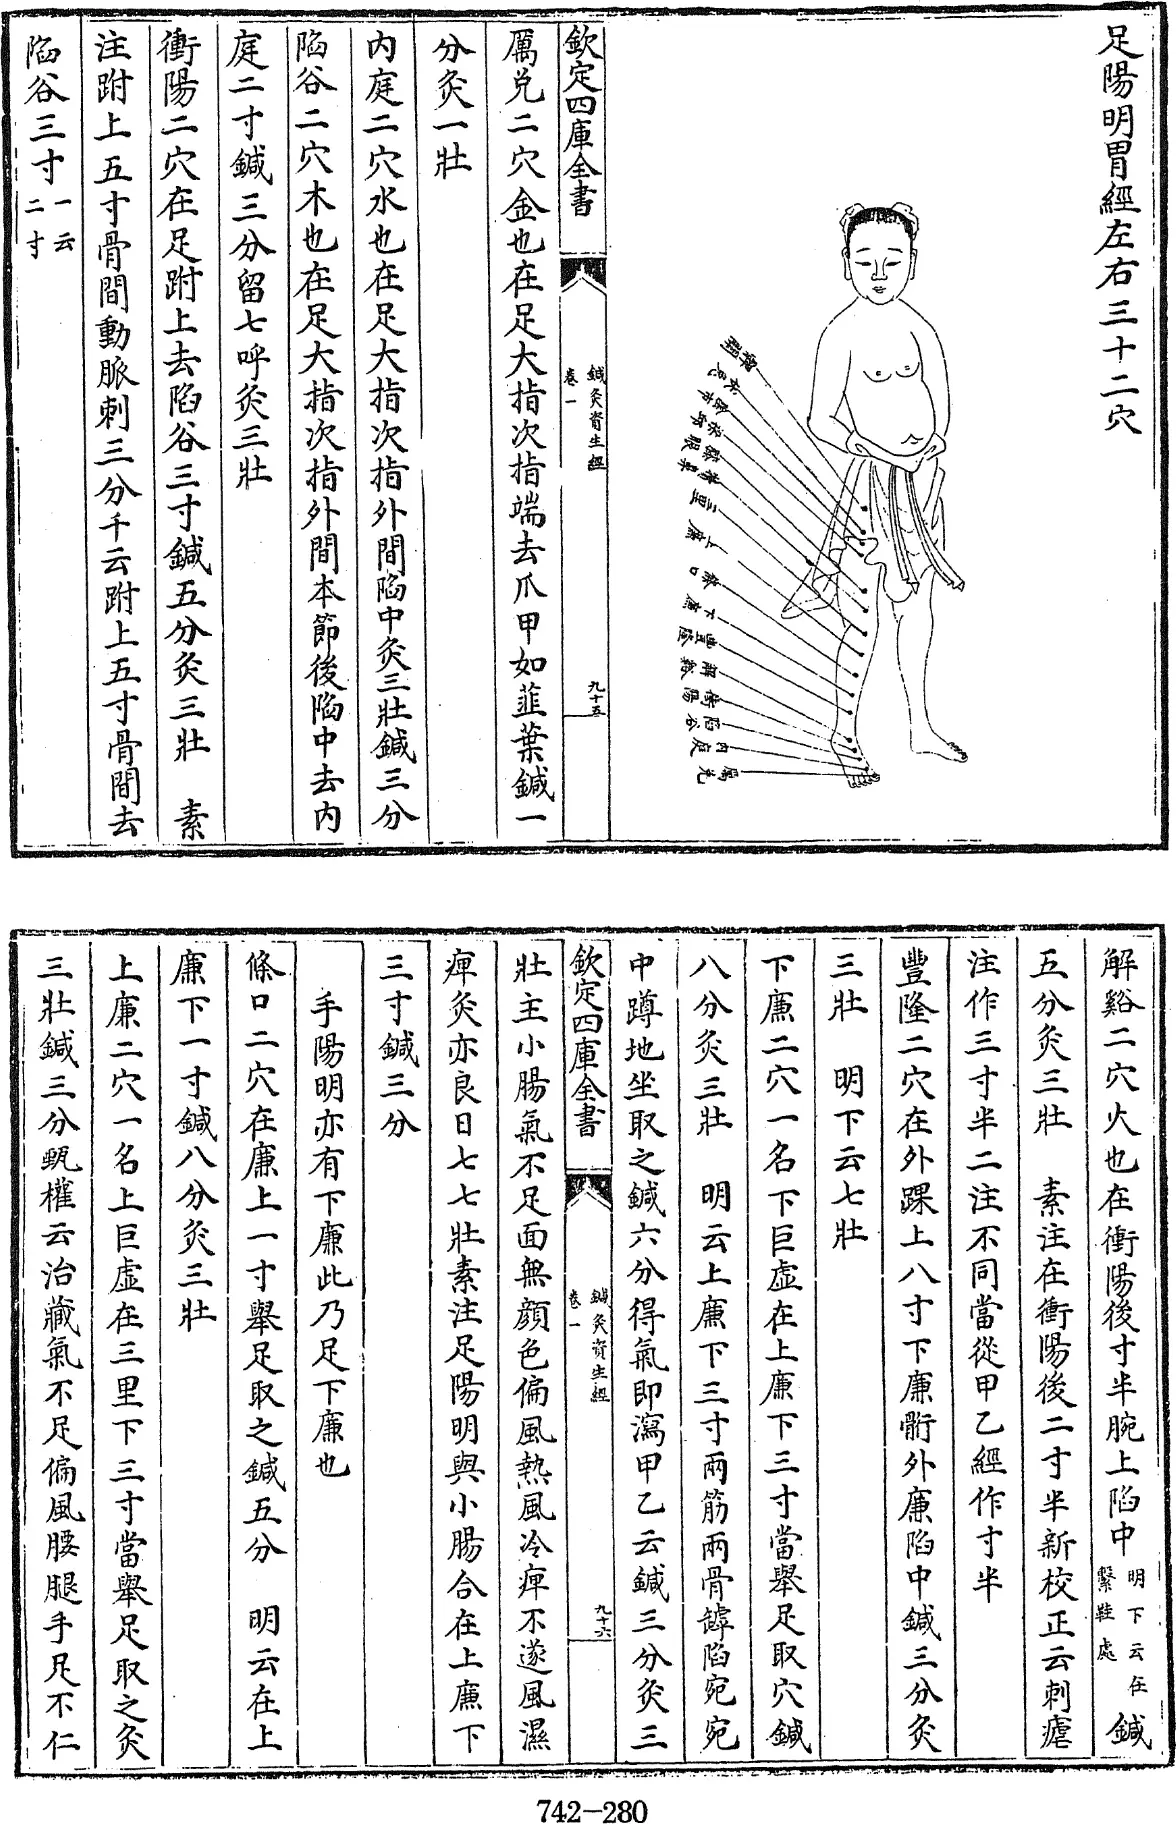 足陽明胃經左右三十二穴
髀關
伏兎
陰市
梁邱
膝眼
犢鼻
三里
上廉
條口
下廉
豊隆
解谿
衝陽
陷谷
内庭
厲兌
欽定四庫全書
鍼灸資生經
卷一
九十五
厲兌二穴金也在足大指次指端去爪甲如韮葉鍼一
分灸一壯
内庭二穴水也在足大指次指外間陷中灸三壯鍼三分
陷谷二穴木也在足大指次指外間本節後陷中去内
庭二寸鍼三分留七呼灸三壯
衝陽二穴在足跗上去陷谷三寸鍼五分灸三壯　素
注跗上五寸骨間動脈刺三分千云跗上五寸骨間去
陷谷三寸一云二寸
解谿二穴火也在衝陽後寸半腕上陷中明下云在繫鞋處鍼
五分灸三壯　素注在衝陽後二寸半新校正云刺瘧
注作三寸半二注不同當從甲乙經作寸半
豐隆二穴在外踝上八寸下廉䯒外廉陷中鍼三分灸
三壯　明下云七壯
下廉二穴一名下巨虚在上廉下三寸當舉足取穴鍼
八分灸三壯　明云上廉下三寸兩筋兩骨罅陷宛宛
中蹲地坐取之鍼六分得氣即瀉甲乙云鍼三分灸三
欽定四庫全書
鍼灸資生經
卷一
九十六
壯主小腸氣不足面無顔色偏風熱風冷痺不遂風濕
痺灸亦良日七七壯素注足陽明與小腸合在上廉下
三寸鍼三分
手陽明亦有下廉此乃足下廉也
條口二穴在廉上一寸舉足取之鍼五分　明云在上
廉下一寸鍼八分灸三壯
上廉二穴一名上巨虚在三里下三寸當舉足取之灸
三壯鍼三分甄權云治藏氣不足偏風腰腿手足不仁
742-280